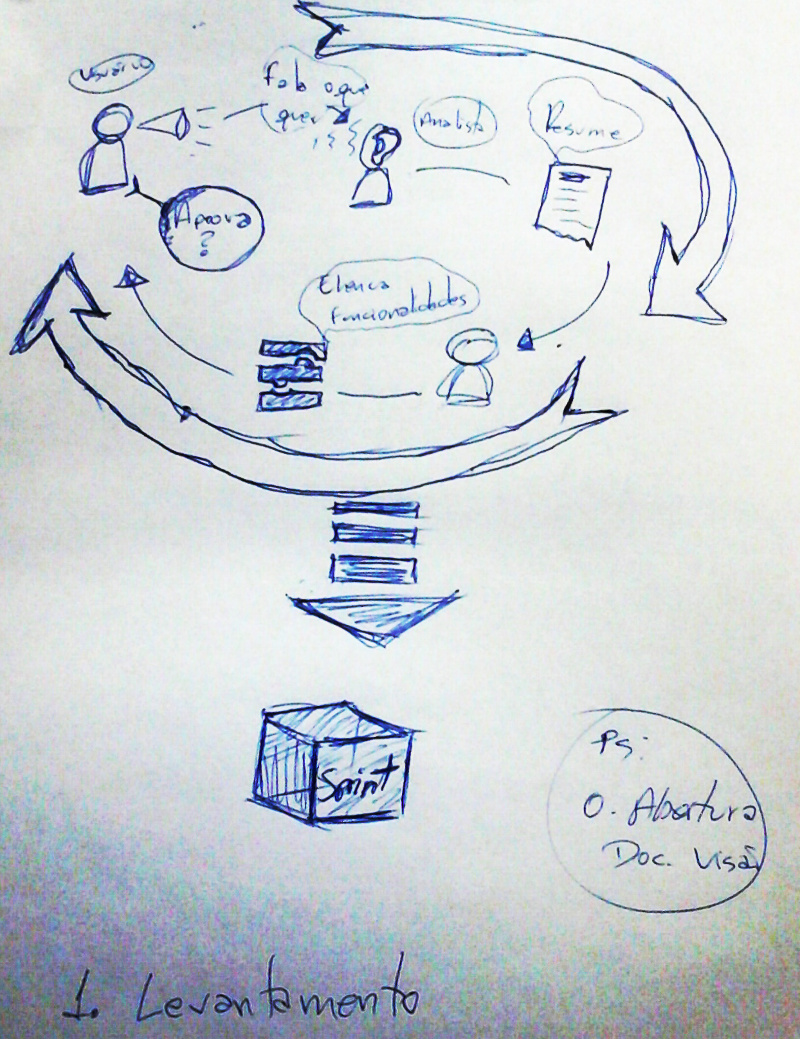 Usuário
Fala o que
quer
Analista
Resume
Aprova
?
Elenca
funcionalidades
Sprint
Ps:
0. Abertura
Doc. Visão
1. Levantamento